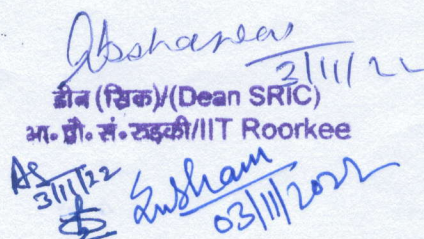 3/11/22
डीन (स्रिक)/(Dean SRIC)
भा. प्रौ. सं. रुड़की/IIT Roorkee
AS
3/11/22
03/11/2022